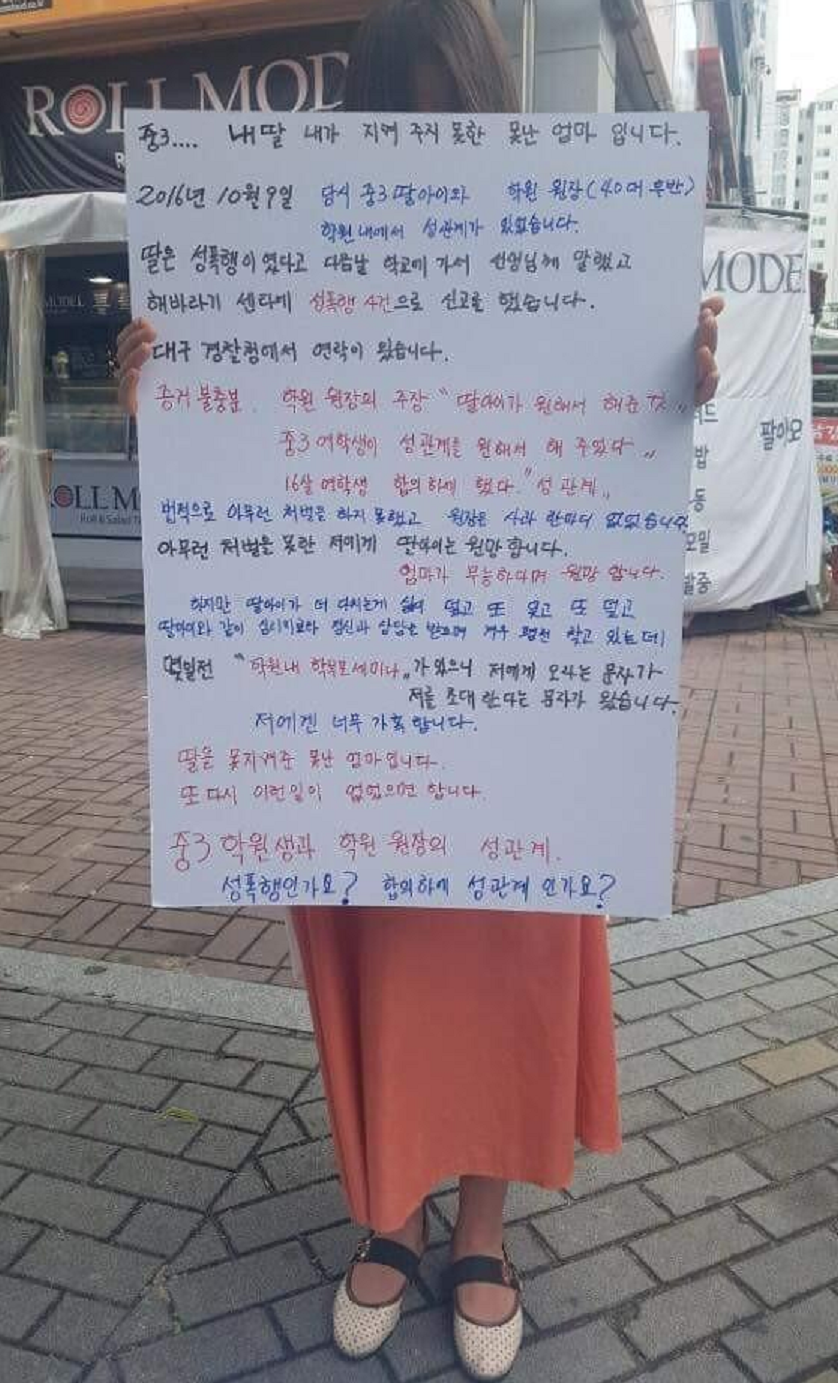 ROLL MOD
중3.... 내딸 내가 지켜 주지 못한 못난 엄마 입니다.
2016년 10월 9일 당시 중3 딸아이와 학원 원장(40대 후반)
학원내에서 성관계가 있었습니다.
딸은 성폭행이였다고 다음날 학교에 가서 선생님께 말했고
해바라기 센타에 성폭행 4건으로 신고를 했습니다.
대구 경찰청에서 연락이 왔습니다.
증거 불충분. 학원 원장의 주장 "딸아이가 원해서 해준 것"
중3 여학생이 성관계를 원해서 해 주었다"
16살 여학생 합의하에 했다. "성관계"
법적으로 아무런 처벌을 하지 못했고 원장은 사과 한마디 없었습니다
아무런 처벌을 못한 저에게 딸아이는 원망합니다.
엄마가 무능하다며 원망 합니다.
하지만 딸아이가 더 다치는게 싫어 덮고 또 잊고 또 덮고
딸아이와 같이 심리치료와 정신과 상담을 받으며 겨우 평정 찾고 있는데
몇일전 "학원내 학부모세미나"가 있으니 저에게 오라는 문자가
저를 초대 한다는 문자가 왔습니다.
저에겐 너무 가혹 합니다.
딸을 못지켜준 못난 엄마입니다.
또 다시 이런일이 없었으면 합니다.
중3 학원생과 학원 원장의 성관계.
성폭행인가요? 합의하에 성관계 인가요?
MODEL
ROLL M
Roll & Salad
팔아요